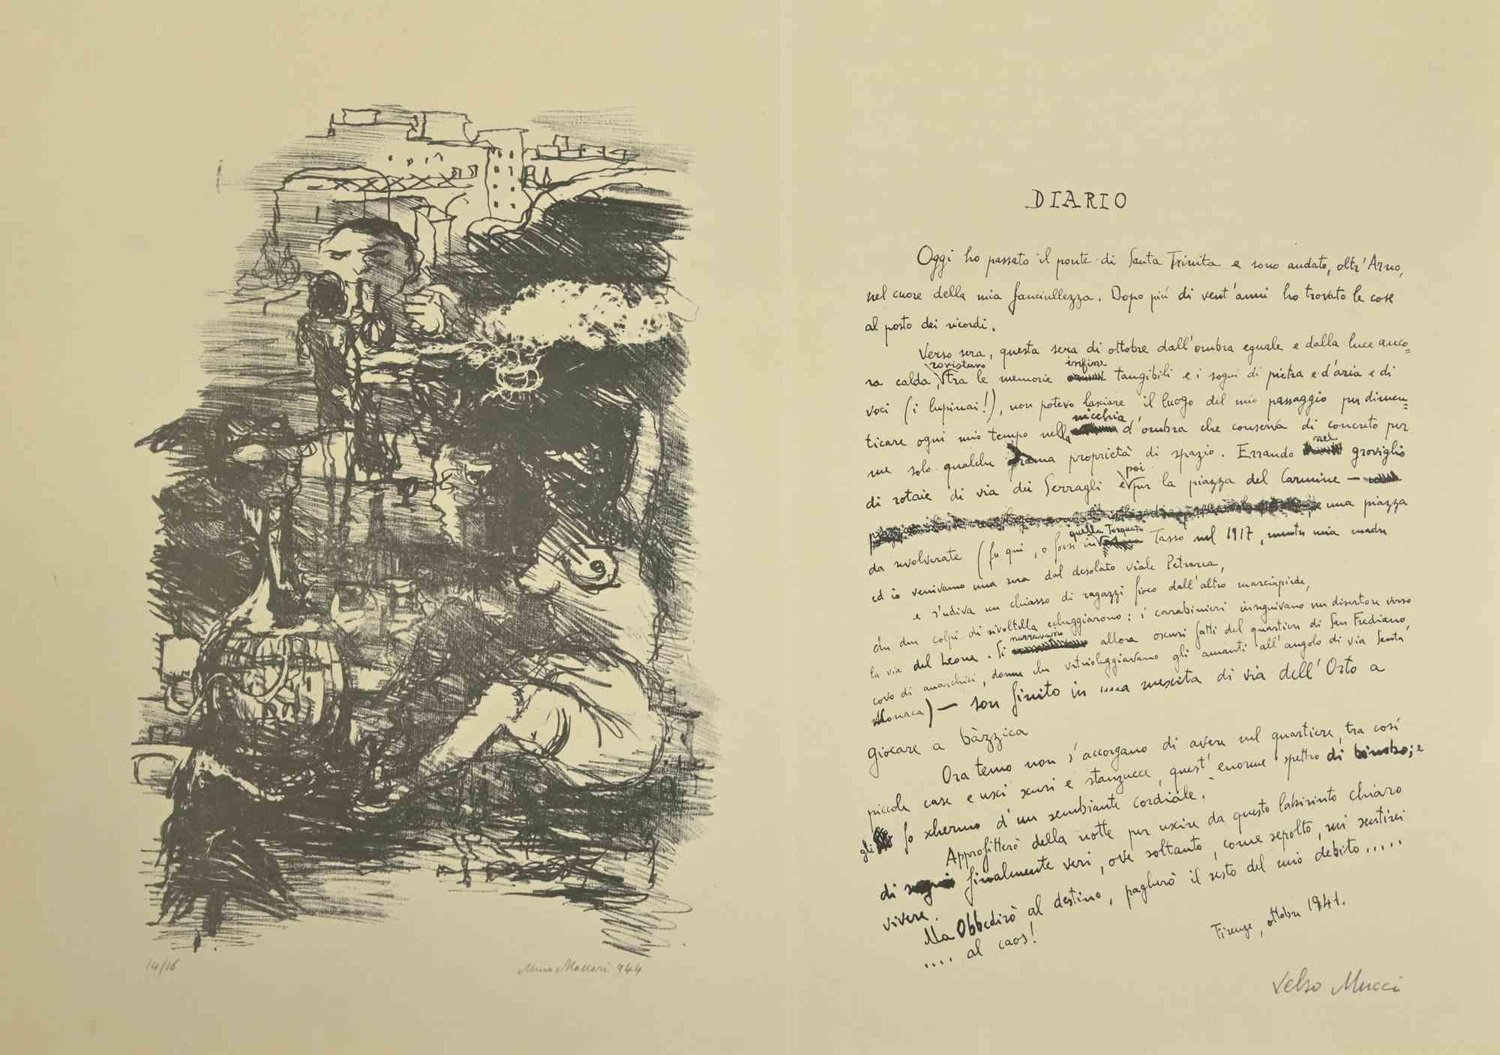 DIARIO
Oggi ho passato il ponte di Santa Trinita e sono andato, oltr'Arno,
nel cuore della mia fanciullezza. Dopo più di vent'anni ho trovato le cose
al posto dei ricordi.
Verso sera, questa sera di ottobre dall'ombra eguale e dalla luce anco=
ra calda, rovistavo tra le memorie infine tangibili e i sogni di pietra e d'aria e di
voci (i lupinai!), non potevo lasciare il luogo del mio passaggio per dimen=
ticare ogni mio tempo nella nicchia d'ombra che conserva di concreto per
me solo qualche grama proprietà di spazio. Errando nel groviglio
di rotaie di via dei Serragli e poi per la piazza del Carmine —
una piazza
da revolverate (fu qui, o forse in quella Torquato Tasso nel 1917, mentre mia madre
ed io venivamo una sera dal desolato viale Petrarca,
e s'udiva un chiasso di ragazzi fioco dall'altro marciapiede,
che due colpi di rivoltella echeggiarono: i carabinieri inseguivano un disertore verso
la via del Leone. Si narravano allora oscuri fatti del quartiere di San Frediano,
covo di anarchici, donne che vetrioleggiavano gli amanti all'angolo di via Santa
Monaca) — son finito in una mescita di via dell'Orto a
giocare a bàzzica
Ora temo non s'accorgano di avere nel quartiere, tra così
piccole case e usci scuri e stanzucce, quest'enorme spettro di bimbo; e
gli fo schermo d'un sembiante cordiale.
Approfitterò della notte per uscire da questo labirinto chiaro
di finalmente veri, ove soltanto, come sepolto, mi sentirei
vivere.
Ma Obbedirò al destino, pagherò il resto del mio debito.....
.... al caos!
Firenze, ottobre 1941.
Velso Mucci
14/16
Mino Maccari 944